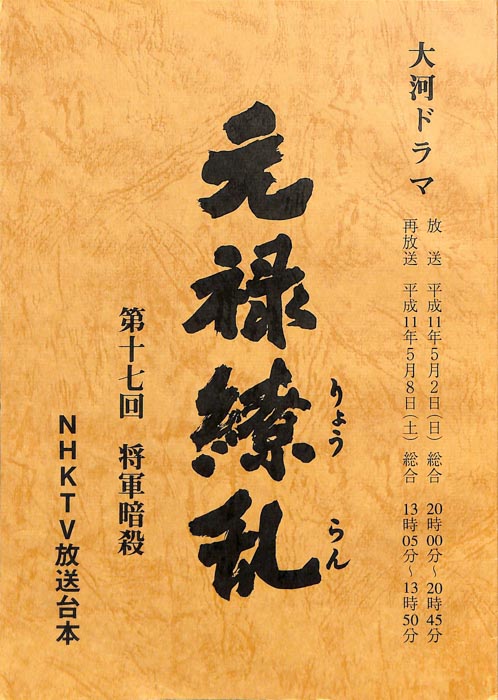 大河ドラマ
放　送　平成11年5月2日（日）総合　20時00分～20時45分
再放送　平成11年5月8日（土）総合　13時05分～13時50分
元禄繚乱
りょう　らん
第十七回　将軍暗殺
NHKTV放送台本